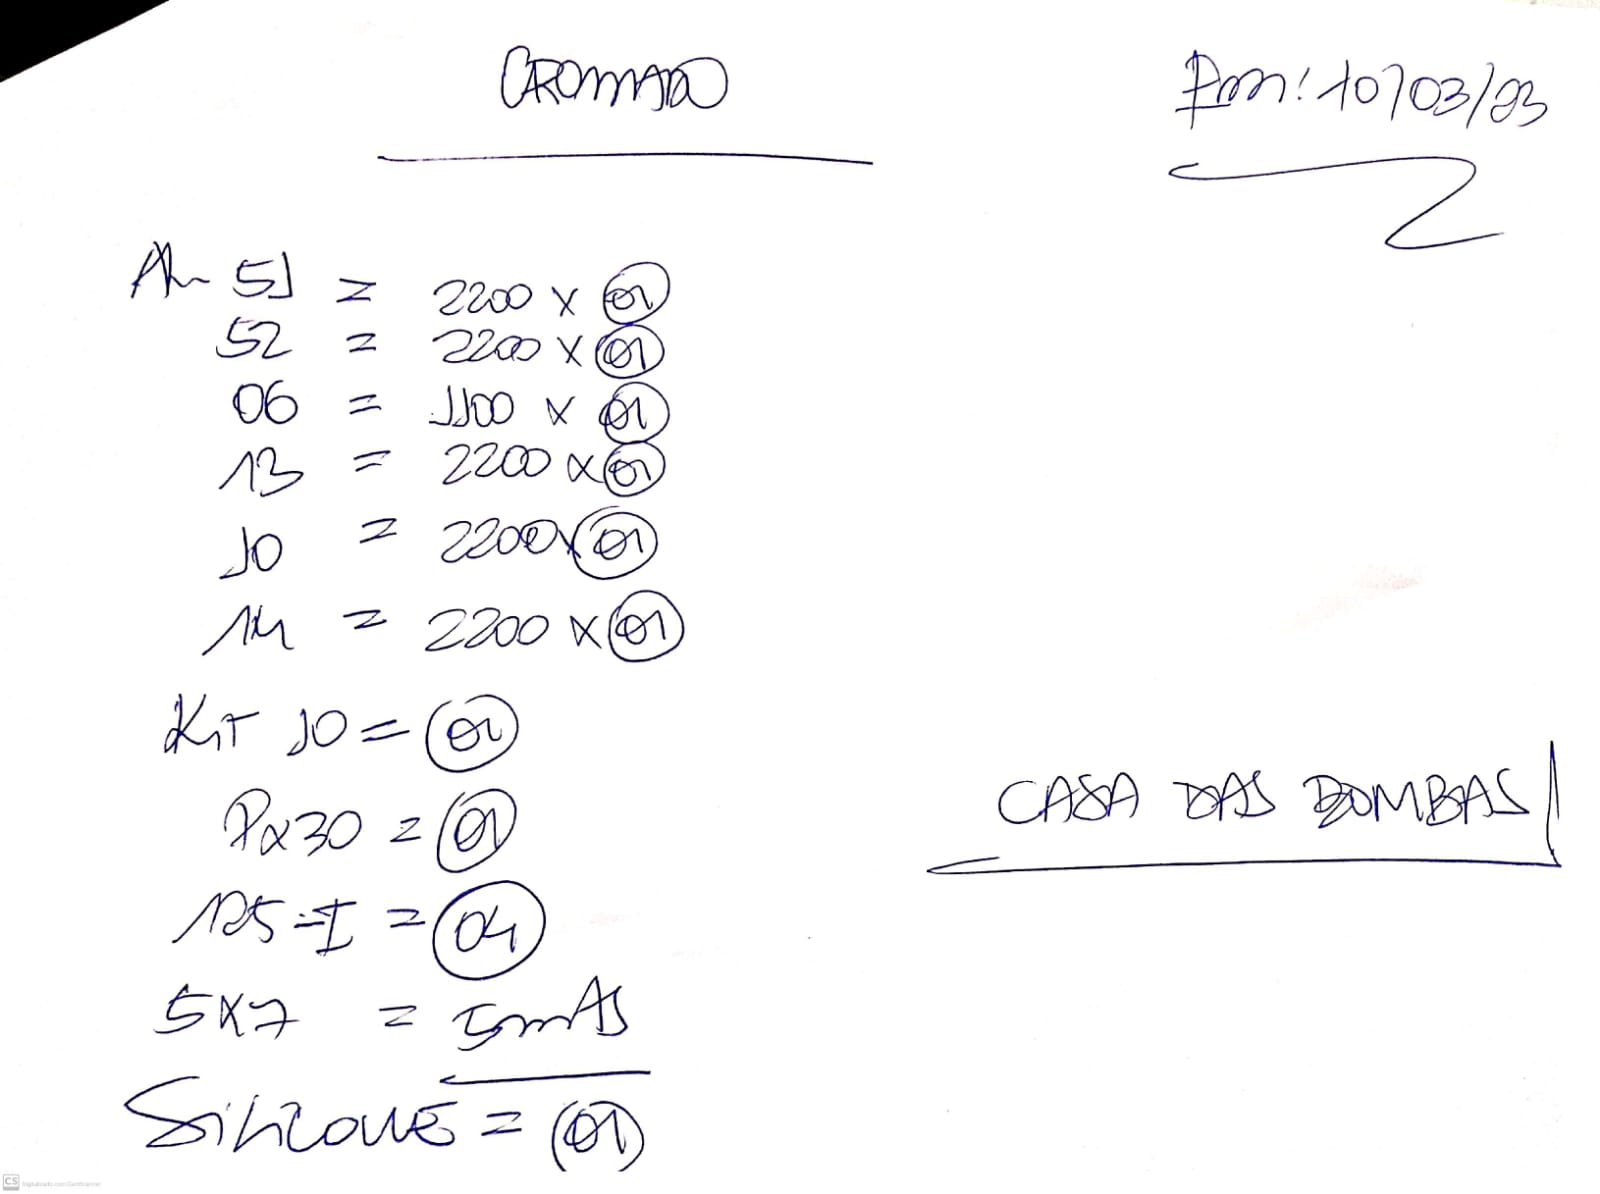 CROMADO
Em: 10/03/23
AL 51 = 2200 x 01
52 = 2200 x 01
06 = 1100 x 01
13 = 2200 x 01
10 = 2200 x 01
14 = 2200 x 01
KIT 10 = 01
Px30 = 01
125-I = 04
CASA DAS BOMBAS
5x7 =
SILICONE = 01
CS Digitalizado com CamScanner